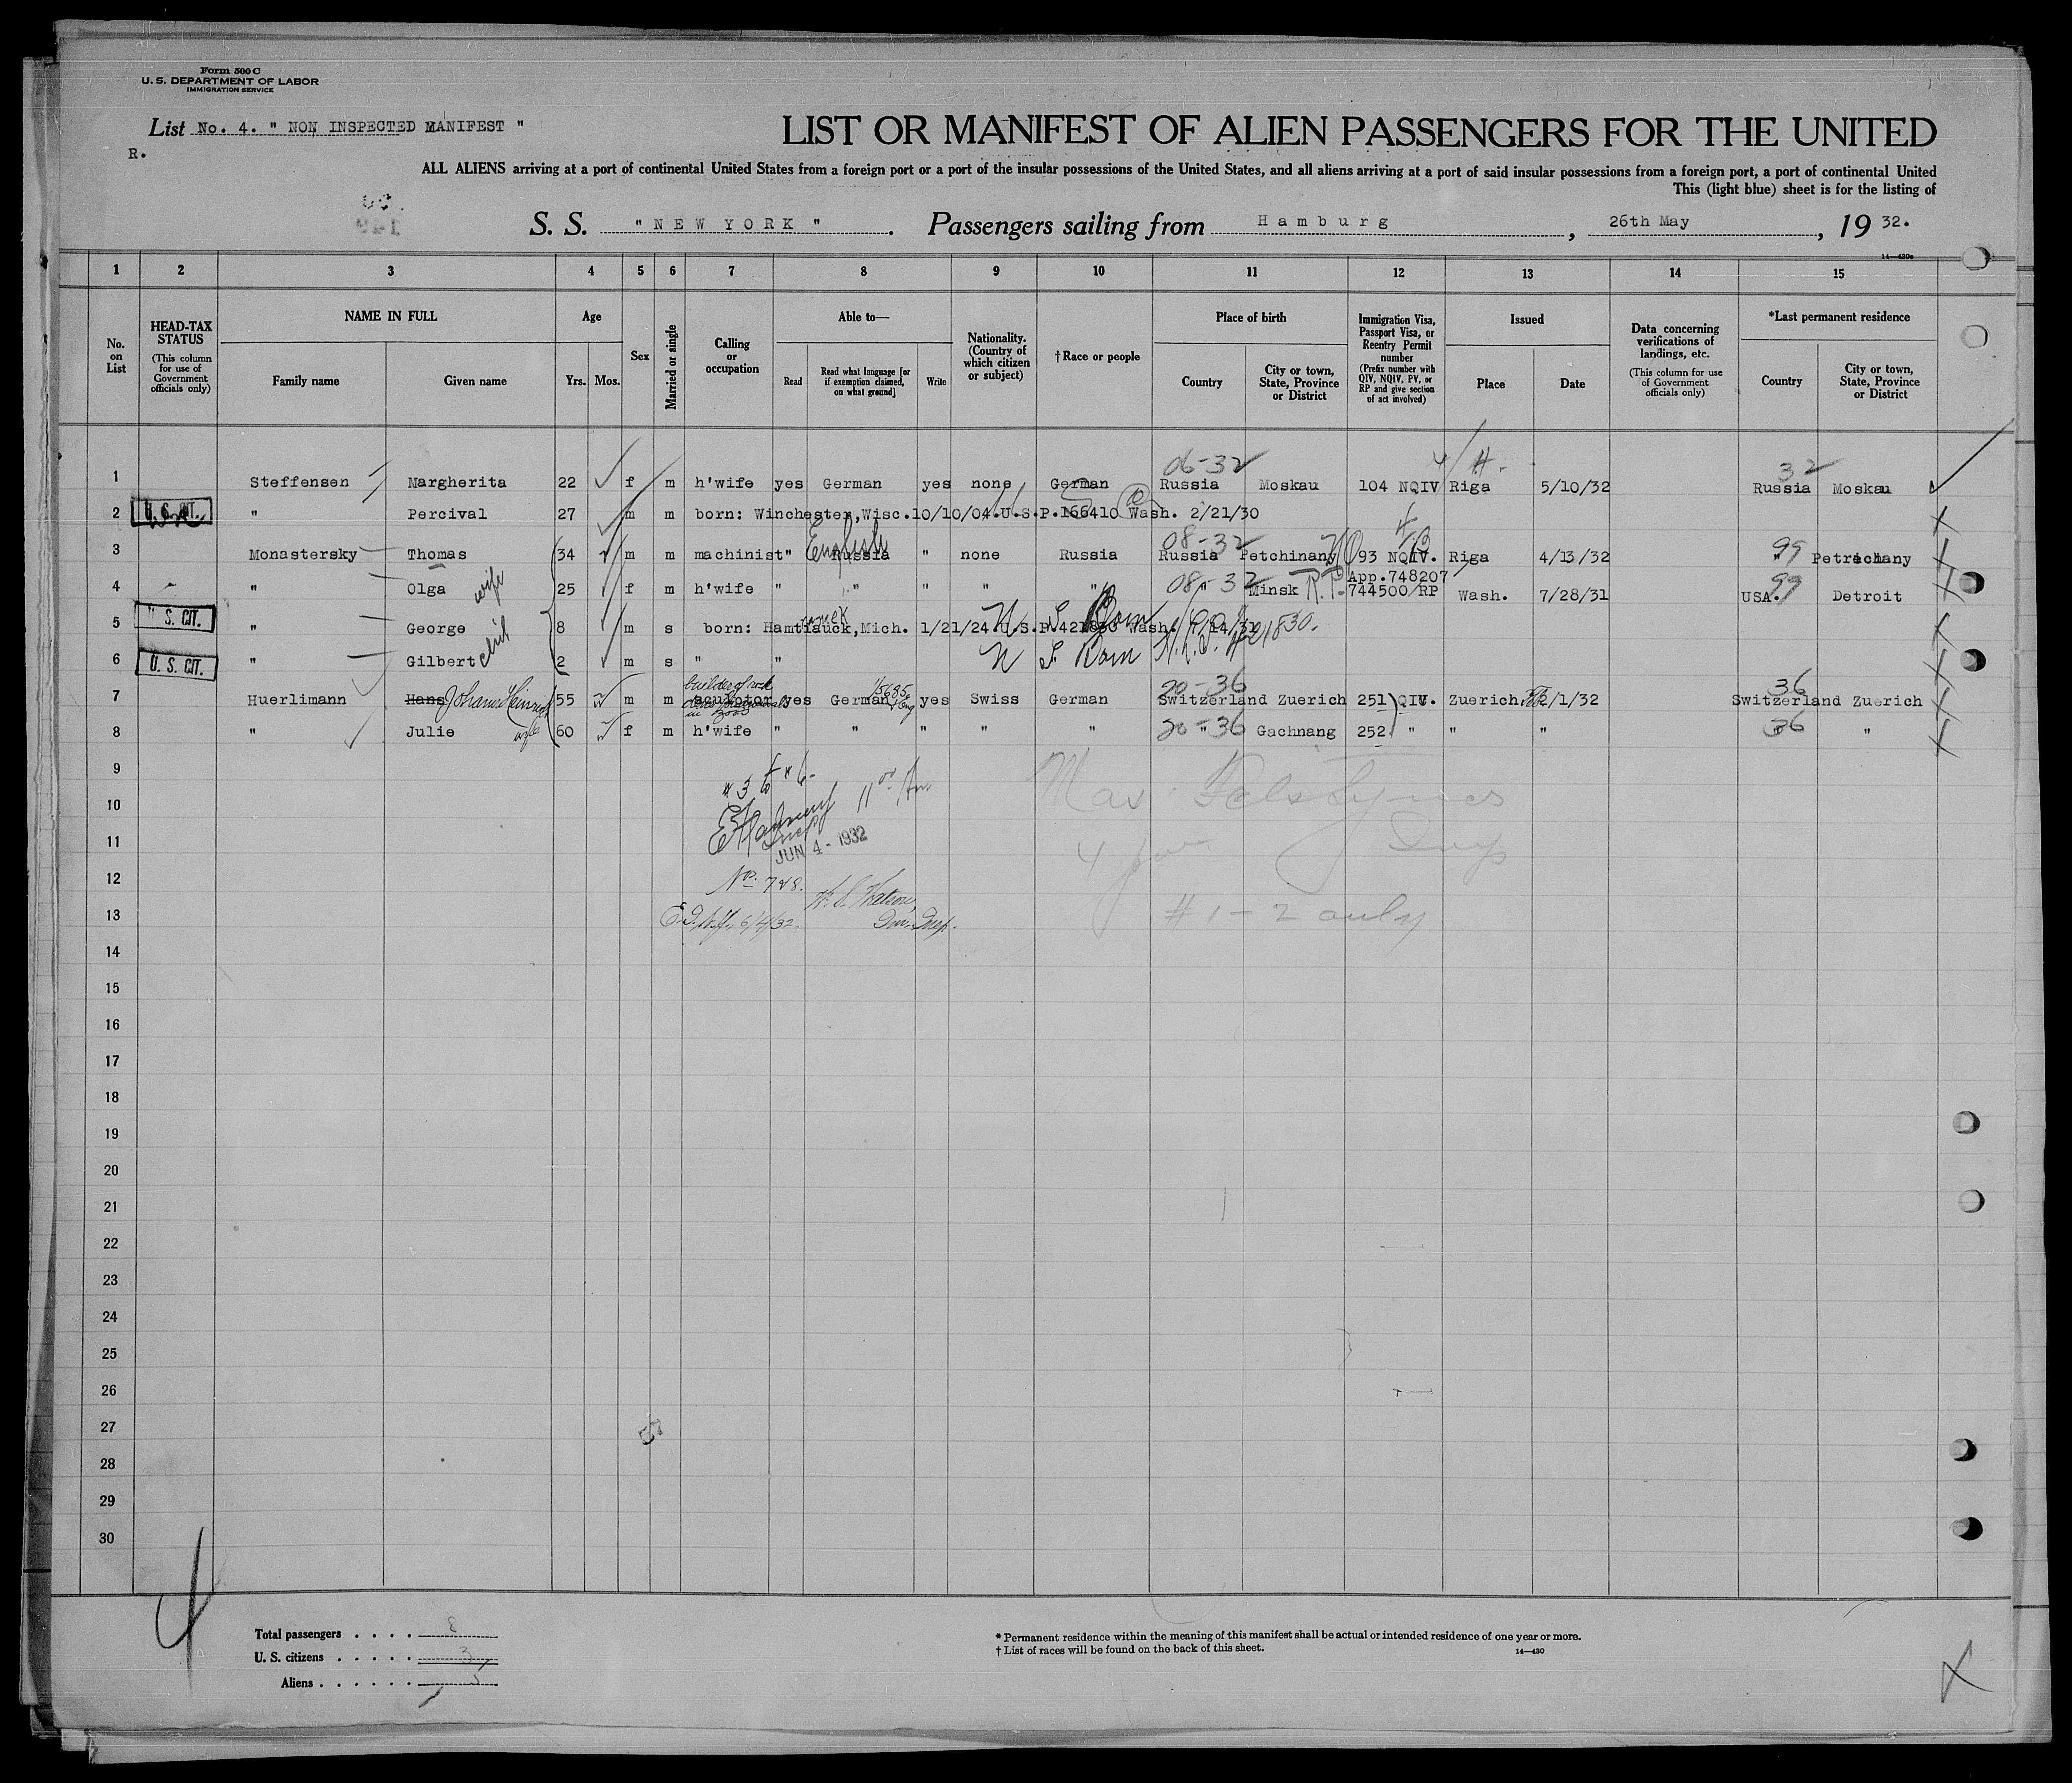 Form 500 C
U. S. DEPARTMENT OF LABOR
IMMIGRATION SERVICE
List No. 4. " NON INSPECTED MANIFEST "
R.
LIST OR MANIFEST OF ALIEN PASSENGERS FOR THE UNITED
ALL ALIENS arriving at a port of continental United States from a foreign port or a port of the insular possessions of the United States, and all aliens arriving at a port of said insular possessions from a foreign port, a port of continental United
This (light blue) sheet is for the listing of
S. S. " NEW YORK " . Passengers sailing from Hamburg , 26th May , 19 32.
14—430a
1 2 3 4 5 6 7 8 9 10 11 12 13 14 15
No. on List
HEAD-TAX STATUS (This column for use of Government officials only)
NAME IN FULL Family name Given name
Age Yrs. Mos.
Sex
Married or single
Calling or occupation
Able to— Read Read what language [or if exemption claimed, on what ground] Write
Nationality. (Country of which citizen or subject)
†Race or people
Place of birth Country City or town, State, Province or District
Immigration Visa, Passport Visa, or Reentry Permit number (Prefix number with QIV, NQIV, PV, or RP and give section of act involved)
Issued Place Date
Data concerning verifications of landings, etc. (This column for use of Government officials only)
*Last permanent residence Country City or town, State, Province or District
06-32 32
1 Steffensen Margherita 22 f m h'wife yes German yes none German Russia Moskau 104 NQIV Riga 5/10/32 Russia Moskau
2 U. S. CIT. " Percival 27 m m born: Winchester,Wisc.10/10/04.U.S.P.166410 Wash. 2/21/30
English 08-32 99
3 Monastersky Thomas 34 m m machinist " Russia " none Russia Russia Petchinany 93 NQIV. Riga 4/13/32 "
4 " Olga wife 25 f m h'wife " " " " " 08-32 " Minsk R.P. App.748207 744500/RP Wash. 7/28/31 USA. 99 Detroit
5 U. S. CIT. " George 8 m s born: Hamtrauck,Mich. 1/21/24 U.S.P.421830 Wash.
6 U. S. CIT. " Gilbert 2 m s " " N Born
builder of rock 20-36 36
7 Huerlimann Hans Johann Heinrich 55 m m sculptor yes German & Eng yes Swiss German Switzerland Zuerich 251 QIV. Zuerich 2/1/32 Switzerland Zuerich
in zoos
8 " Julie wife 60 f m h'wife " " " " " 20-36 " Gachnang 252 " " " 36 "
9
10
11
JUN 4 - 1932
12
No. 728.
13
# 1 - 2 only
14
15
16
17
18
19
20
21
22
23
24
25
26
27
28
29
30
4
Total passengers . . . . 8
U. S. citizens . . . . . 3
Aliens . . . . . . 5
* Permanent residence within the meaning of this manifest shall be actual or intended residence of one year or more.
† List of races will be found on the back of this sheet.
14—430